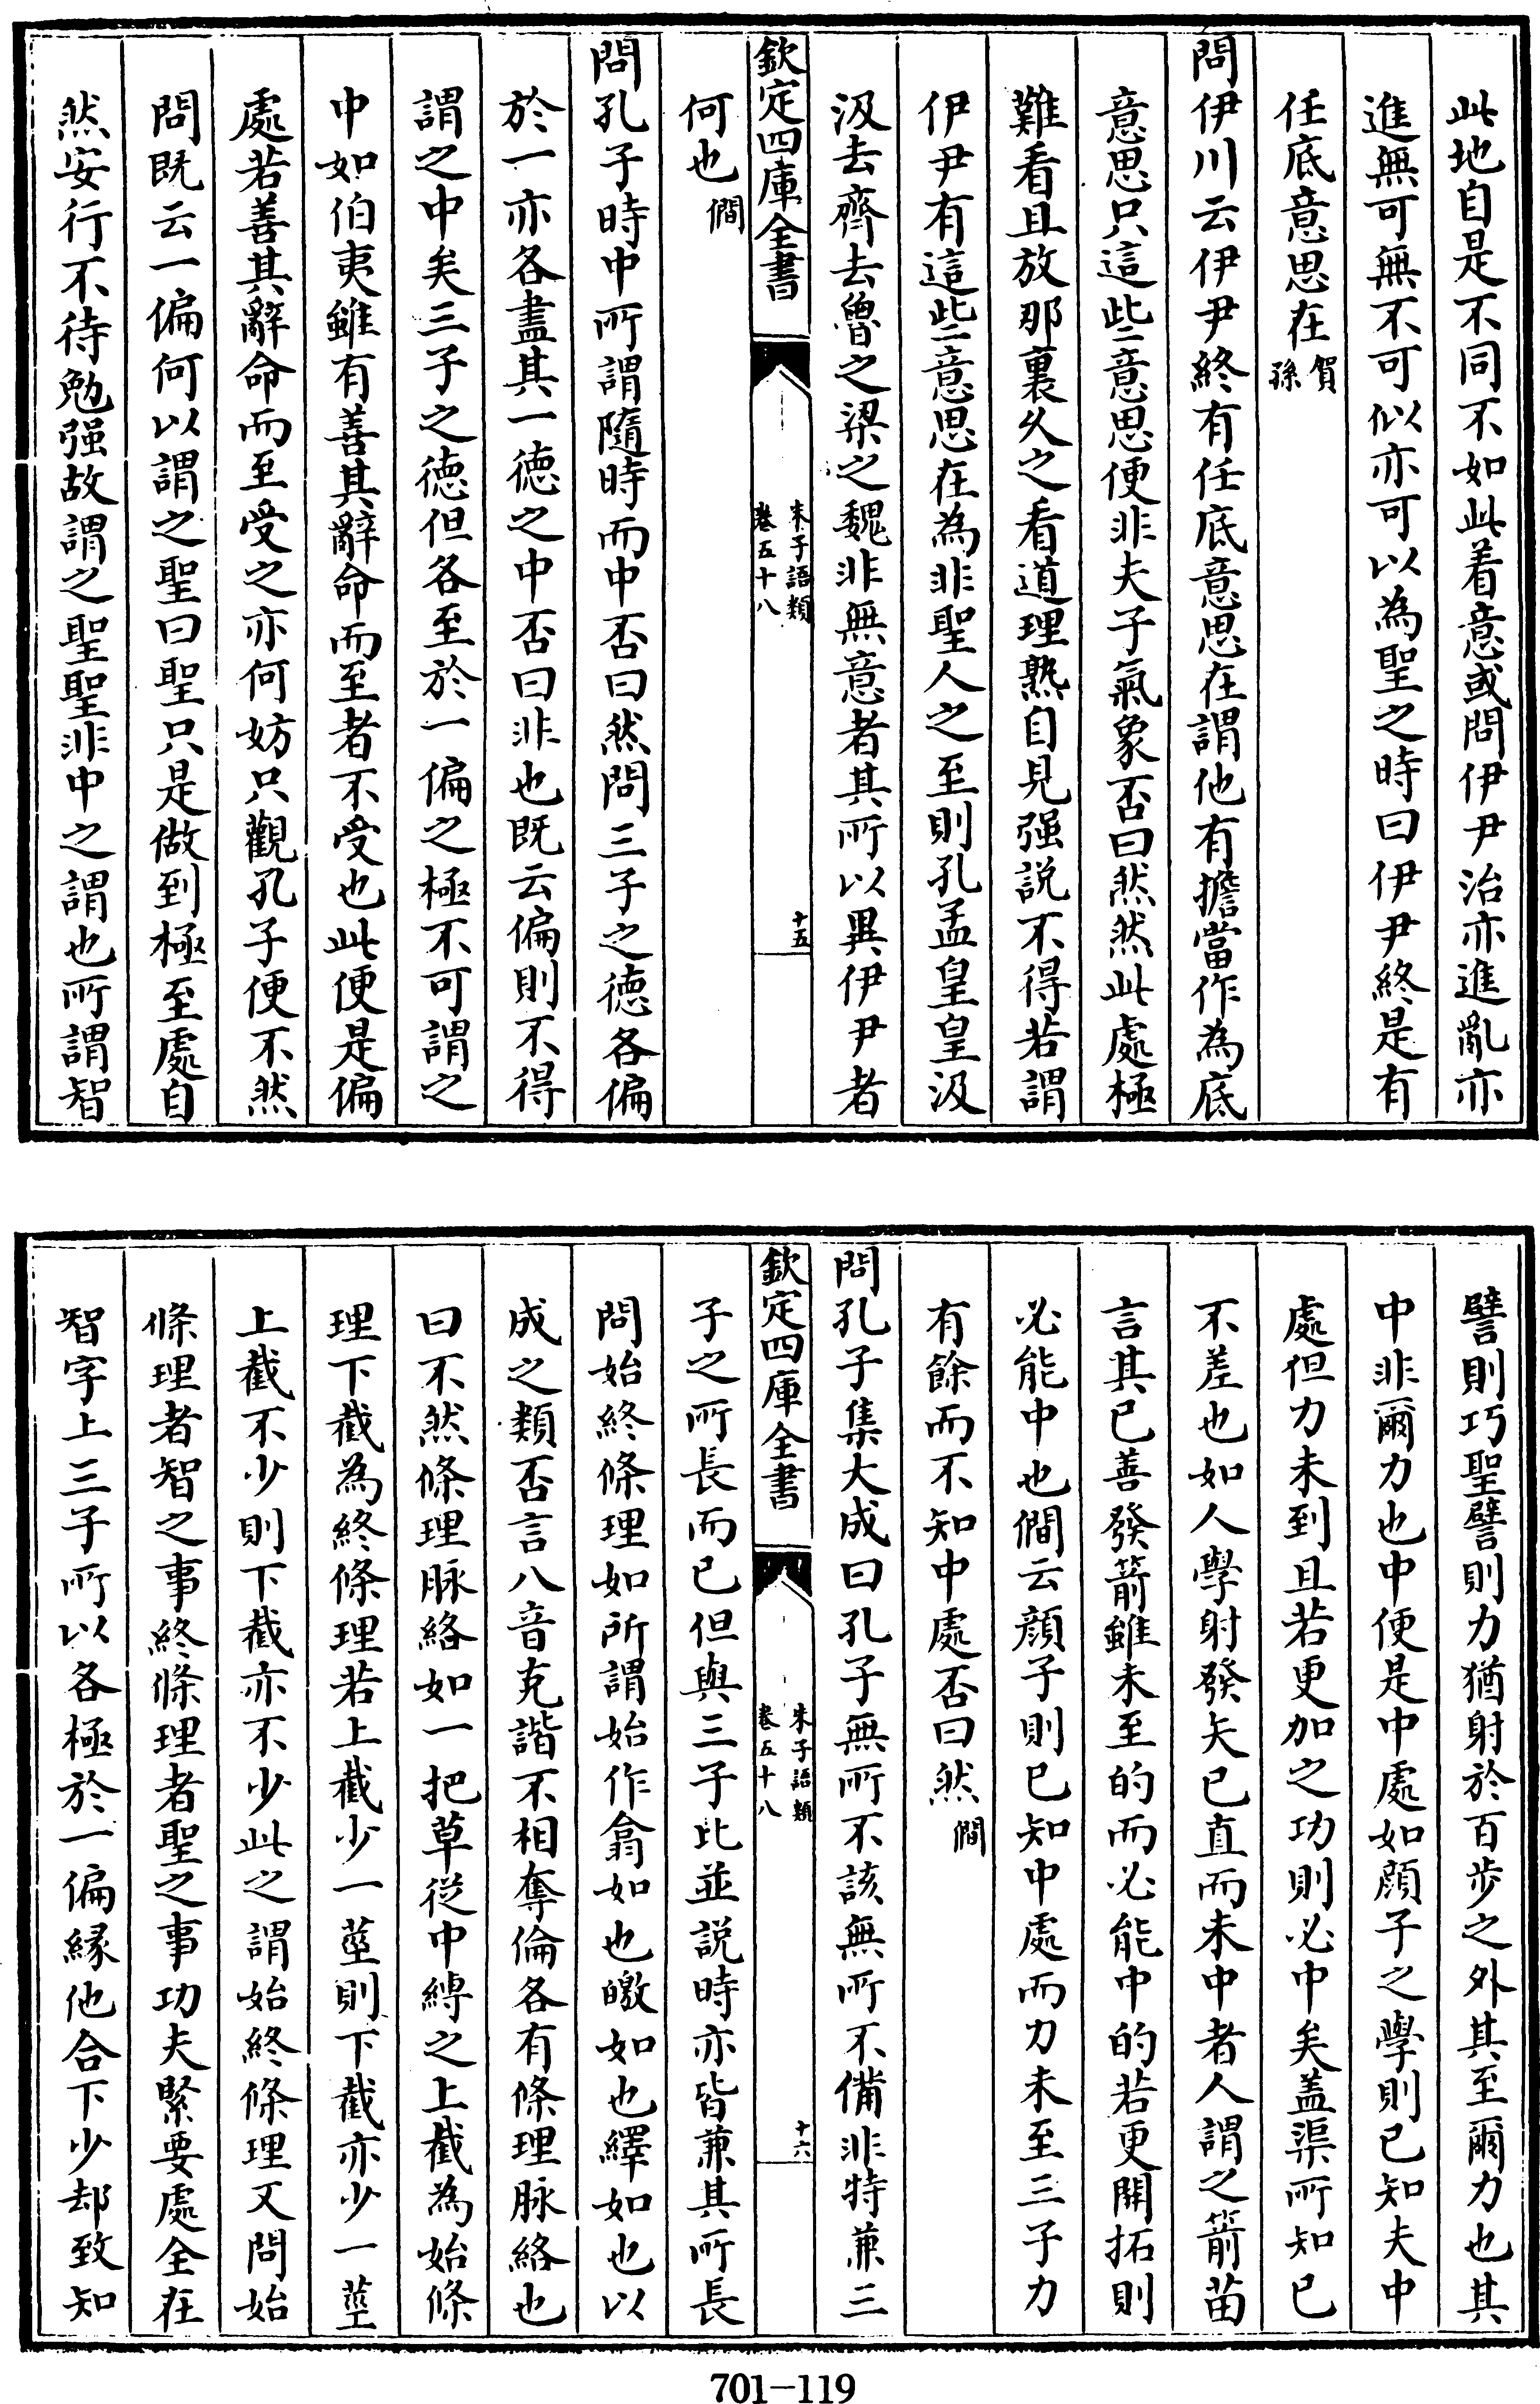 此地自是不同不如此着意或問伊尹治亦進亂亦
進無可無不可似亦可以為聖之時曰伊尹終是有
任底意思在賀孫
問伊川云伊尹終有任底意思在謂他有擔當作為底
意思只這些意思便非夫子氣象否曰然然此處極
難看且放那裏久之看道理熟自見强説不得若謂
伊尹有這些意思在為非聖人之至則孔孟皇皇汲
汲去齊去魯之梁之魏非無意者其所以異伊尹者
欽定四庫全書
朱子語類
卷五十八
十五
何也僴
問孔子時中所謂隨時而中否曰然問三子之德各偏
於一亦各盡其一德之中否曰非也既云偏則不得
謂之中矣三子之德但各至於一偏之極不可謂之
中如伯夷雖有善其辭命而至者不受也此便是偏
處若善其辭命而至受之亦何妨只觀孔子便不然
問既云一偏何以謂之聖曰聖只是做到極至處自
然安行不待勉强故謂之聖聖非中之謂也所謂智
譬則巧聖譬則力猶射於百步之外其至爾力也其
中非爾力也中便是中處如顔子之學則已知夫中
處但力未到且若更加之功則必中矣盖渠所知已
不差也如人學射發矢已直而未中者人謂之箭苗
言其已善發箭雖未至的而必能中的若更開拓則
必能中也僴云顔子則已知中處而力未至三子力
有餘而不知中處否曰然僴
問孔子集大成曰孔子無所不該無所不備非特兼三
欽定四庫全書
朱子語類
卷五十八
十六
子之所長而已但與三子比並説時亦皆兼其所長
問始終條理如所謂始作翕如也皦如也繹如也以
成之類否言八音克諧不相奪倫各有條理脉絡也
曰不然條理脉絡如一把草從中縛之上截為始條
理下截為終條理若上截少一莖則下截亦少一莖
上截不少則下截亦不少此之謂始終條理又問始
條理者智之事終條理者聖之事功夫緊要處全在
智字上三子所以各極於一偏緣他合下少却致知
701-119